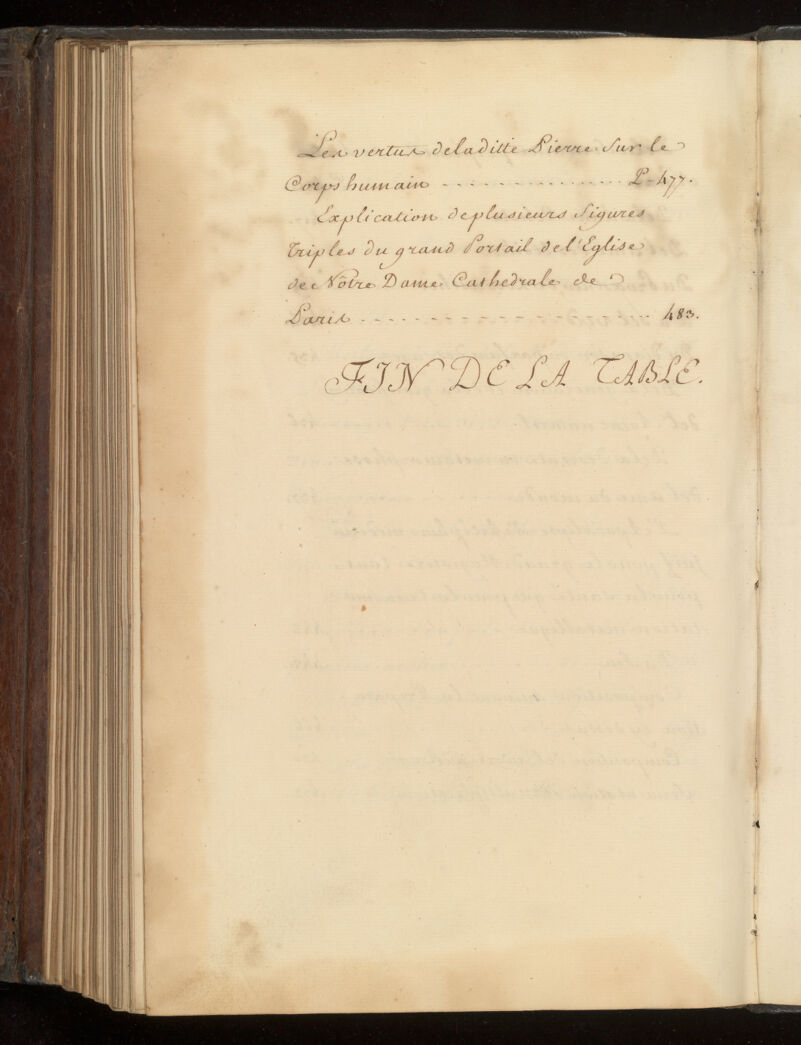 Les vertus de la ditte Pierre Sur le
Corps humain - - - - - - - - - - - - - - P - 477.
Explication de plusieurs figures
triples du grand Portail de l'Eglise
de Nôtre Dame Cathedrale de
Paris - - - - - - - - - - - - - - - - - 483.
FIN DE LA TABLE.